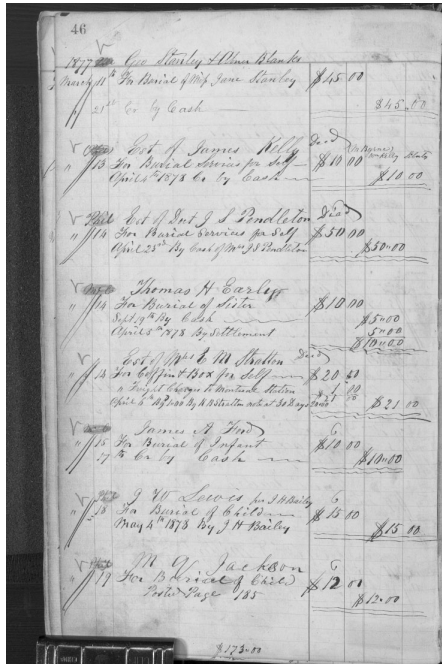 46
1877 Geo Stanley & Oliver Blanks
March 11th For Burial of Mrs Jane Stanley $45 00
" 21st Cr by Cash $45.00
Est of James Kelly Dead
" 13 For Burial Servises for Self $10 00
April 4th 1878 Cr by Cash $10 00
Est of Dnt J S Pendleton Dead
" 14 For Burial Services for Self $50 00
April 23rd By Cash of Mrs J S Pendleton $50.00
Thomas H Early
" 14 For Burial of Sister $10 00
Sept 19th By Cash $5.00
April 5th 1878 By Settlement 5.00
$10.00
Est of Mrs E M Stratton Dead
" 14 For Coffin & Box for Self $20 00
" Freight Charges to Station 1 00
April By Note at 30 Days $21 00 $21 00
James A Ford
" 15 For Burial of Infant $10 00
17th Cr by Cash $10.00
J W Lewis for J H Bailey
" 18 For Burial of Child $15 00
May 4th 1878 By J H Bailey $15 00
M G Jackson
" 19 For Burial of Child $12 00
Posted Page 185 $12.00
$173.00